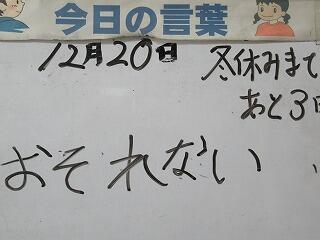 今日の言葉
12月20日
冬休みまで
あと3日
おそれない